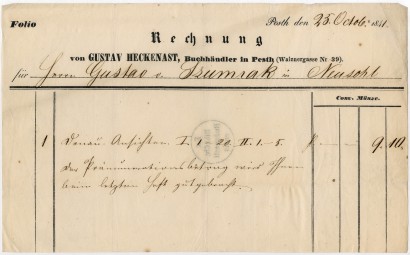 Folio
Pesth den 25. Octob. 1841.
Rechnung
von GUSTAV HECKENAST, Buchhändler in Pesth (Waiznergasse Nr 39).
für Herrn Gustav v. Szumrak in Neusohl
Conv. Münze.
1 Donau Ansichten I. 1–20. II. 1.–5. 9. 10.
Der Pränumerationsbetrag wird Ihnen
beim letzten Heft gutgebracht.